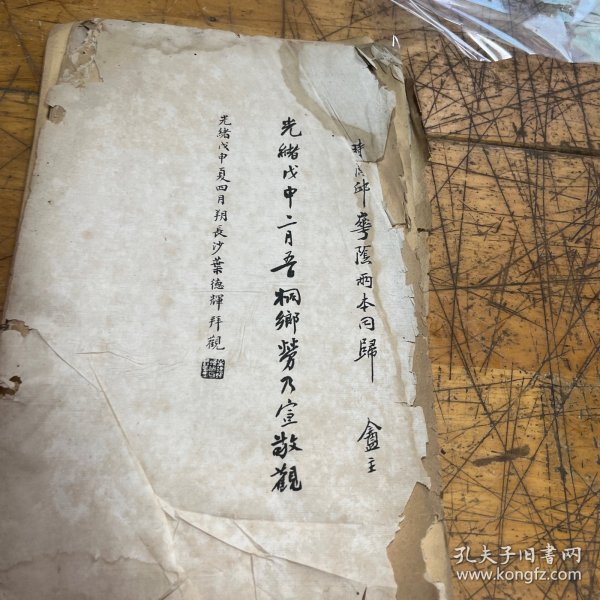 邱華陰兩本同歸
盦主
光緒戊申二月吾桐鄉勞乃宣敬觀
光緒戊申夏四月朔長沙葉德輝拜觀
孔夫子旧书网
www.kongfz.com